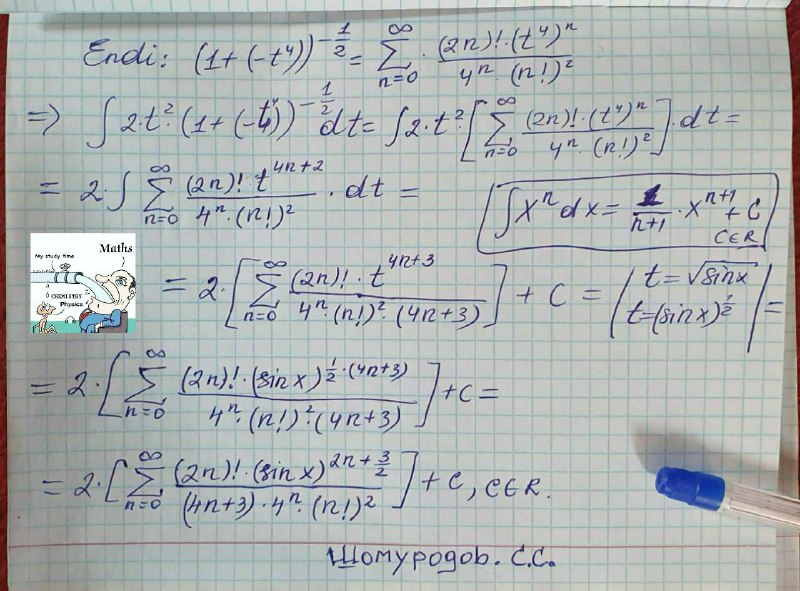 Endi: (1+(-t⁴))^{-1/2} = ∑_{n=0}^{∞} · (2n)!·(t⁴)ⁿ / 4ⁿ·(n!)²
=> ∫2·t²·(1+(-t⁴))^{-1/2} dt = ∫2·t²·[∑_{n=0}^{∞} (2n)!·(t⁴)ⁿ / 4ⁿ·(n!)²]·dt =
= 2·∫ ∑_{n=0}^{∞} (2n)!·t^{4n+2} / 4ⁿ·(n!)² · dt =
∫xⁿdx = 1/(n+1) · x^{n+1} + C
C∈R
Maths
My study time
CHEMISTRY
Physics
= 2·[∑_{n=0}^{∞} (2n)!·t^{4n+3} / 4ⁿ·(n!)²·(4n+3)] + C = | t=√sinx
t=(sinx)^{1/2} | =
= 2·[∑_{n=0}^{∞} (2n)!·(sinx)^{1/2·(4n+3)} / 4ⁿ·(n!)²·(4n+3)] + C =
= 2·[∑_{n=0}^{∞} (2n)!·(sinx)^{2n+3/2} / (4n+3)·4ⁿ·(n!)²] + C, C∈R.
Шомуродов. С.С.